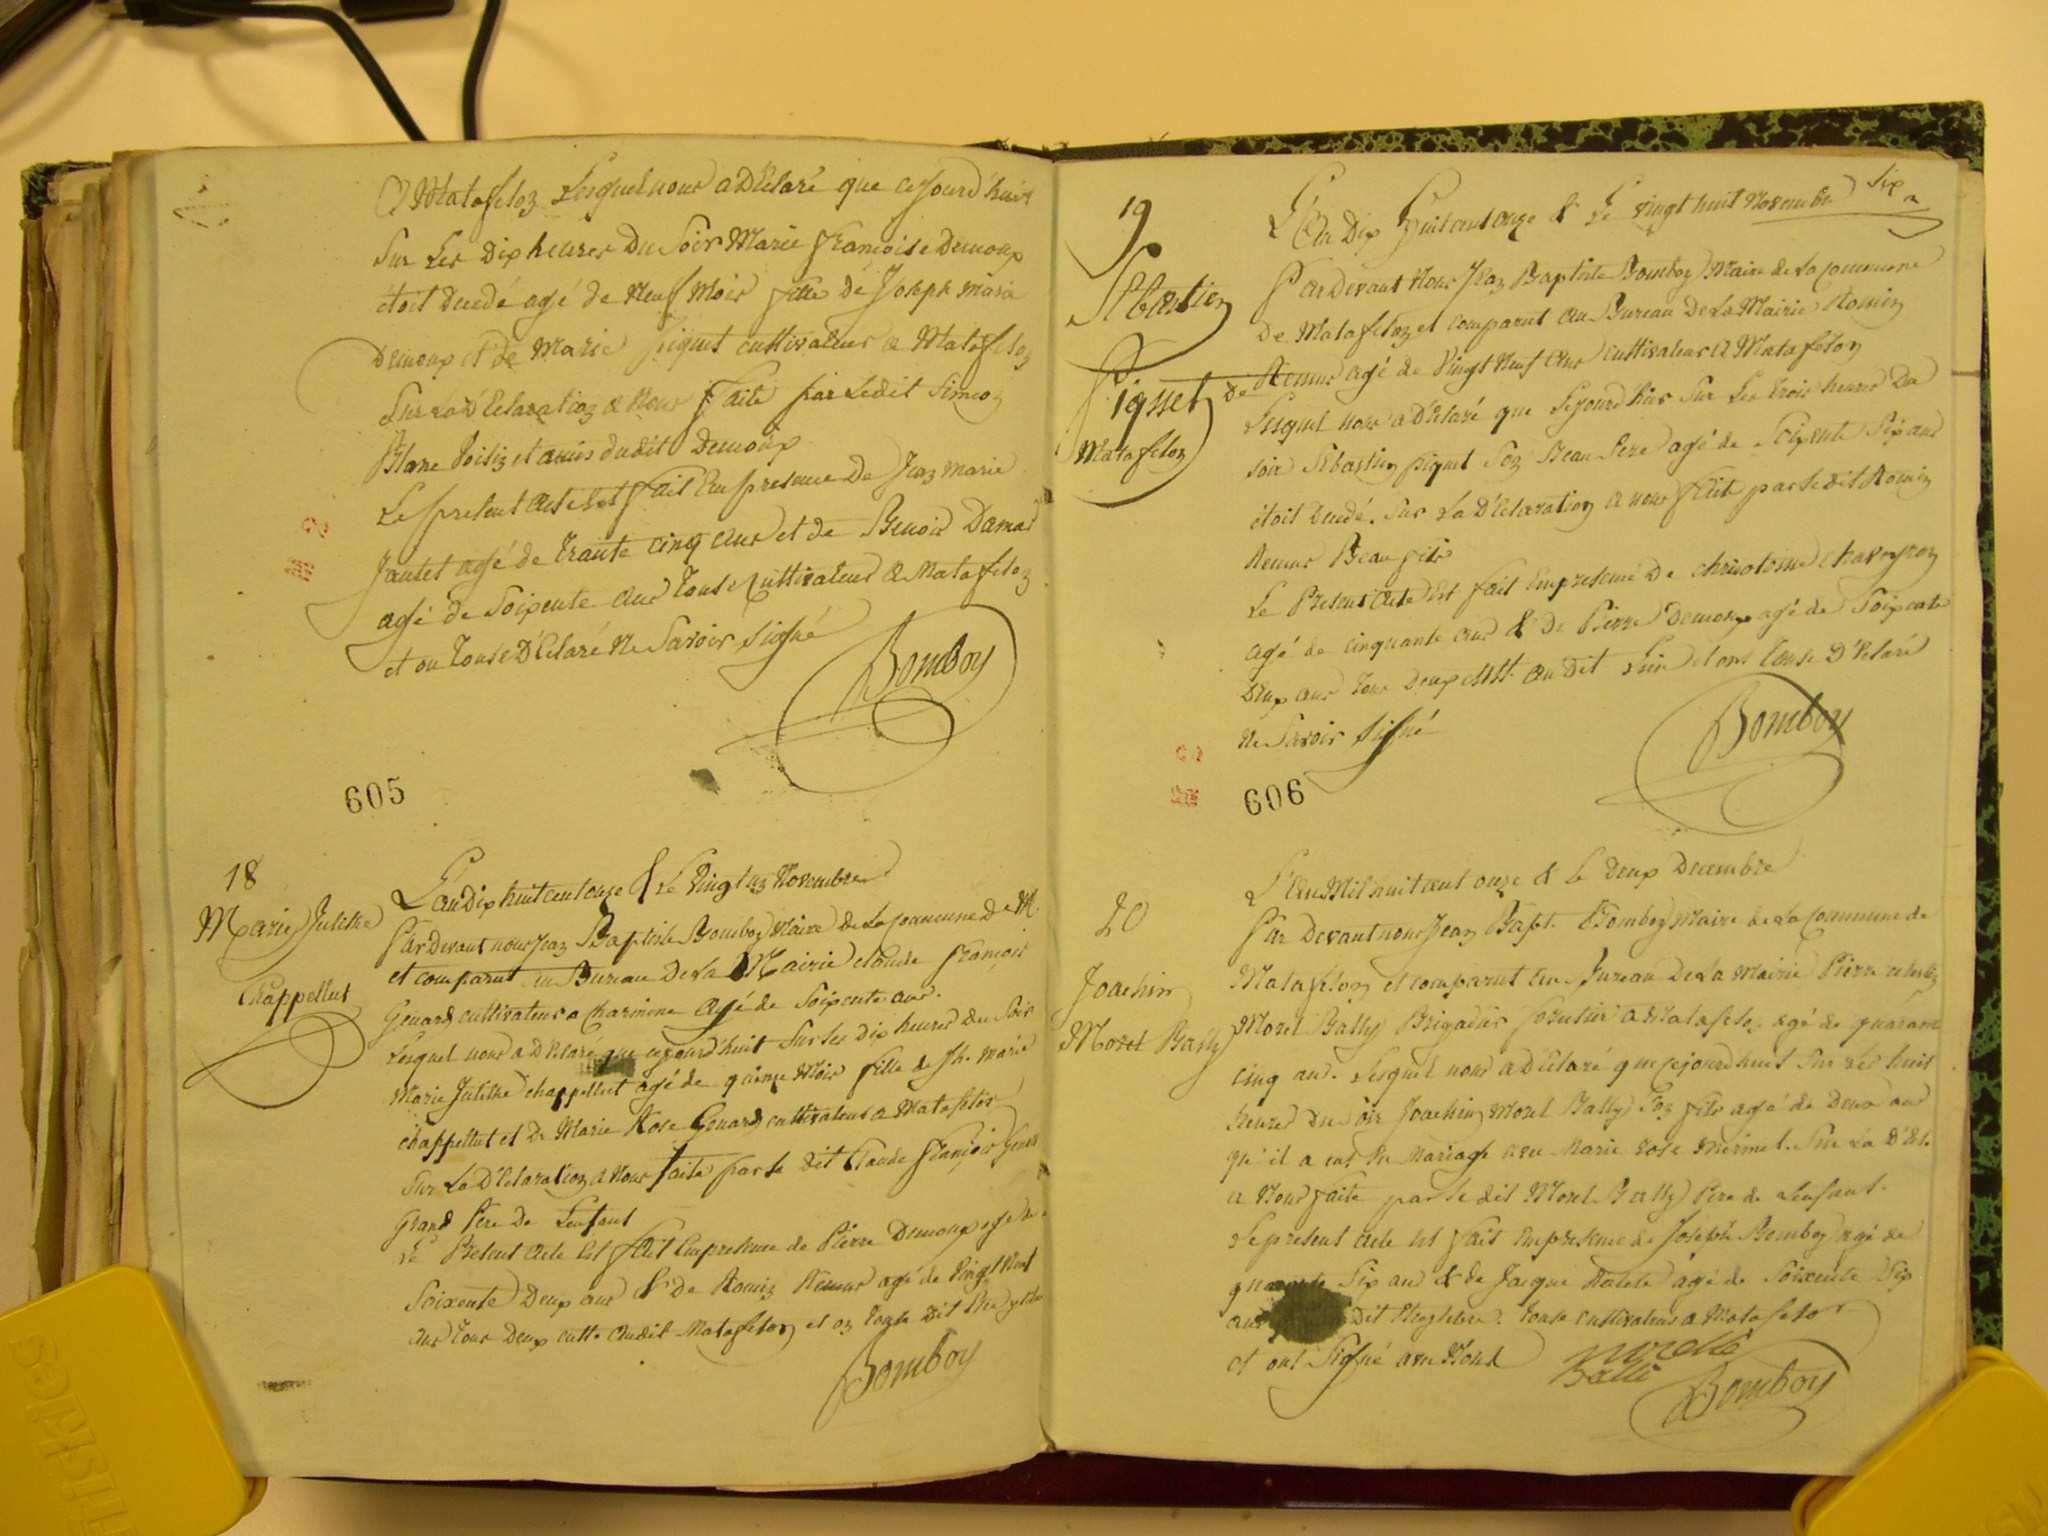 A Matafelon Lesquel nous a Déclaré que cejourd'huit
Sur Les Dix heures Du Soir Marie Françoise Demoux
étoit Decedé agé de Neuf Mois fille de Joseph Marie
Demoux et de Marie Piquet cultivateur a Matafelon
Sur La Déclaration a Nous faite par Ledit Simeon
Blanc Voisin et amis dudit Demoux
Le present acte Est fait En presence De Jean Marie
Jantet agé de Trante cinq ans et de Benoit Damas
agé de Soixente ans Touse Cultivateur a Matafelon
et on Touse Déclaré Ne Savoir Signé
Bomboy
605
18
Marie Julithe
Chappellut
L'an Dix huit cent onze & Le Vingt un Novembre
Par Devant nous Jean Baptiste Bomboy Maire de La Commune de M.
et comparut au Bureau De La Mairie claude françois
Genard cultivateur a Charmine agé de Soixente ans.
Lesquel nous a Déclaré que cejourd'huit Sur Les dix heures du Soir
Marie Julithe chappellut agé de quinze Mois fille de Jh. Marie
chappellut et De Marie Rose Genard cultivateur a Matafelon
Sur La Déclaration a Nous faite par Le dit Claude François
Grand Pere De Lenfant
Le Present acte Est fait En presence de Pierre Demoux agé de
Soixente Deux ans & De Romin Remur agé de Vingt Neuf
ans Tous Deux cult. audit Matafelon et on Touse Dit Ne
Bomboy
Six
19
Sebastien
Piquet De
Matafelon
L'an Dix Huit cent onze & Le vingt huit Novembre
Par Devant Nous Jean Baptiste Bomboy Maire de La Commune
De Matafelon et comparut au Bureau De La Mairie Romin
Remur agé de Vingt Neuf ans cultivateur a Matafelon
Lesquel nous a Déclaré que Sejourd'hui Sur Les trois heures Du
soir Sebastien piquet Son Beau Pere agé de Soixente Six ans
étoit Decedé. Sur La Déclaration a nous faite par Le dit Romin
Remur Beau fils
Le Present acte Est fait En presence De
agé de cinquante ans & De Pierre Demoux agé de Soixente
Deux ans Tous Deux cult. au Dit Lieu et ont Touse Déclaré
Ne Savoir Signé
Bomboy
606
20
Joachin
Morel Bally
L'an Mil huit cent onze & Le Deux Decembre
Par Devant nous Jean Bapt. Bomboy Maire de La Commune de
Matafelon et comparut au Bureau De La Mairie Pierre
Morel Bally Brigadier forestier a Matafelon agé de quarante
cinq ans. Lesquel nous a Déclaré que cejourdhuit Sur Les huit
heures du Soir Joachin Morel Bally Son fils agé de Deux ans
qu'il a eut En Mariage avec Marie Rose Mermet. Sur La Décl.
a Nous faite par Le dit Morel Bally Pere de Lenfant.
Le present acte Est fait En presence de Joseph Bomboy agé de
quarante Six ans & de Jacque agé de Soixente Six
ans Dit Touse cultivateur a Matafelon
et ont Signé avec Nous
morelle
Balli
Bomboy